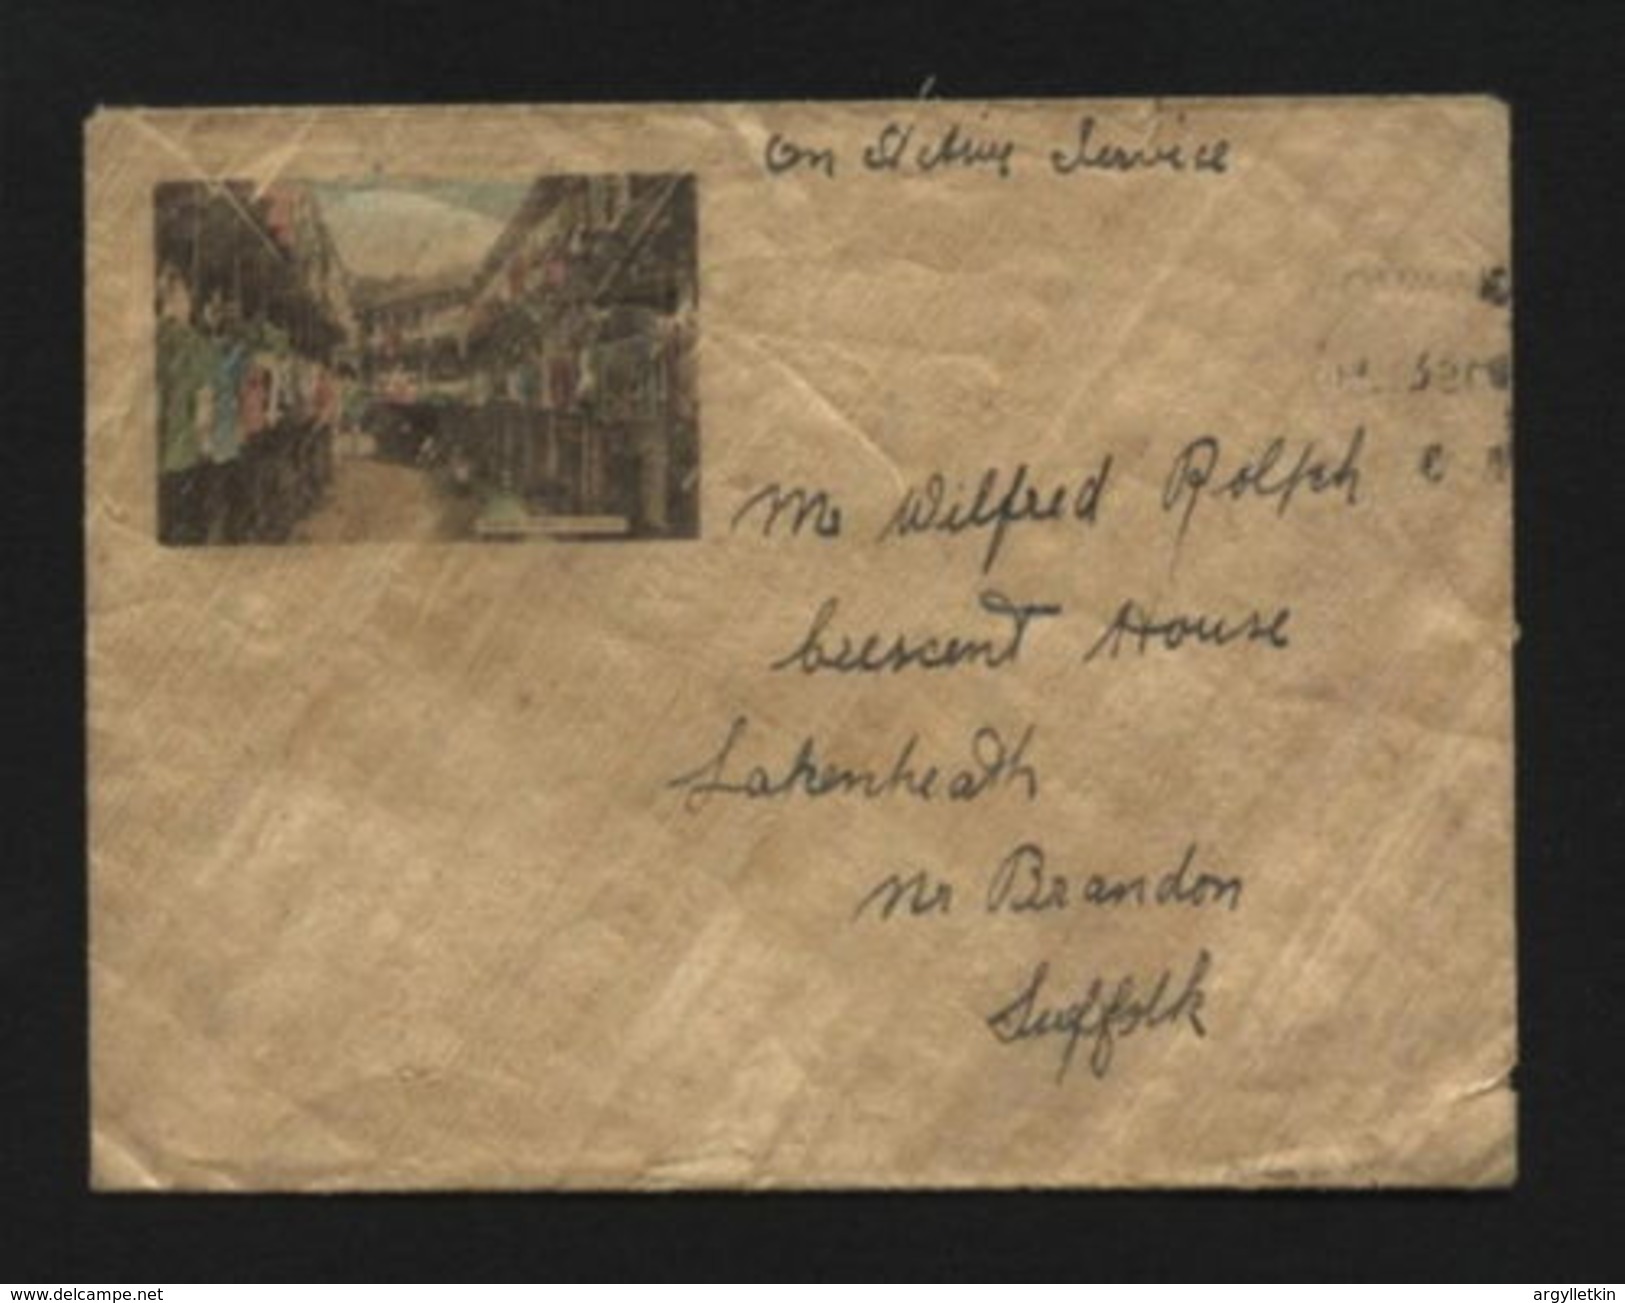 On Active Service
Mr Wilfred Rolph
Crescent House
Lakenheath
Nr Brandon
Suffolk
delcampe.net
argylletkin